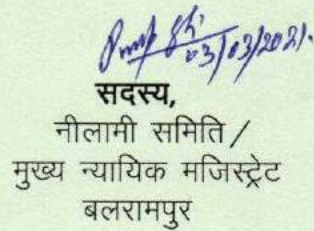 03/03/2021.
सदस्य,
नीलामी समिति/
मुख्य न्यायिक मजिस्ट्रेट
बलरामपुर